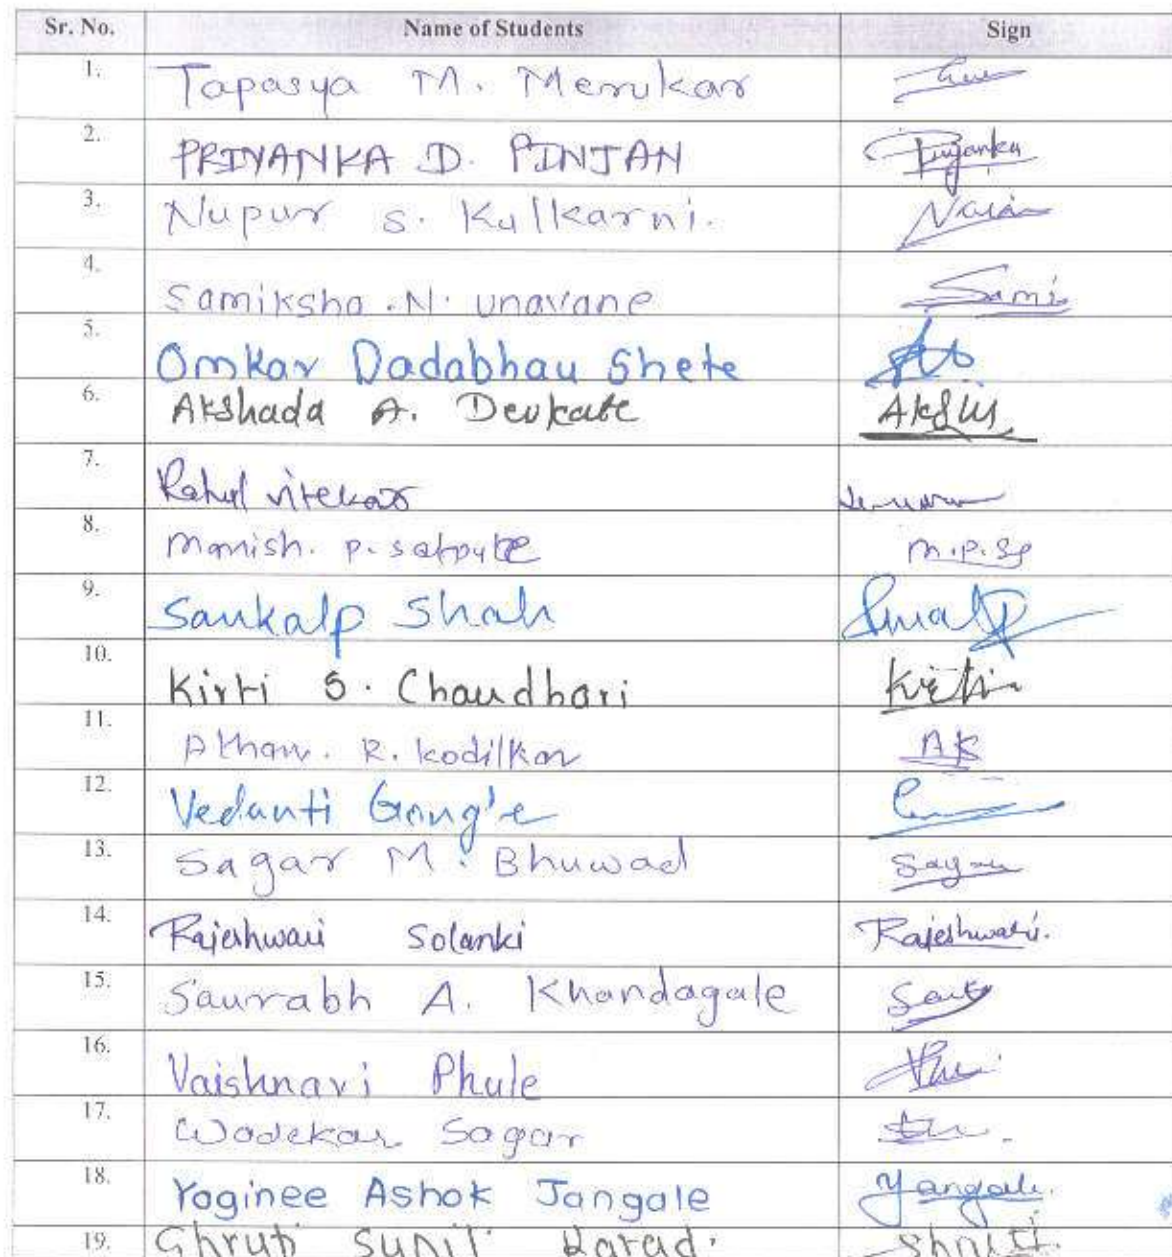 Sr. No. Name of Students Sign
1. Tapasya M. Menukar
2. PRIYANKA D. PINJAN Priyanka
3. Nupur S. Kulkarni.
4. Samiksha . N. unavane Sami
5. Omkar Dadabhau Shete
6. Akshada A. Devkate
7. Rahul vitekar
8. Manish. P. Satpute M.P.Sp
9. Sankalp Shah
10. Kirti S. Chaudhari Kirti
11. R. Kodilkar AK
12. Vedanti
13. Sagar M. Bhuwad Sagar
14. Rajeshwari Solanki Rajeshwari.
15. Saurabh A. Khandagale
16. Vaishnavi Phule
17. Wadekar Sagar
18. Yoginee Ashok Jangale
19. Shruti Sunil Karad. Shruti